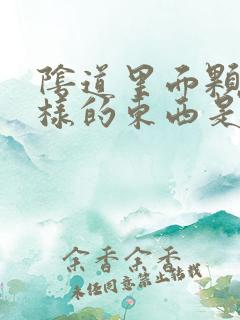 陰道里而顆
樣的東西是
余香余香
未经同意禁止转载